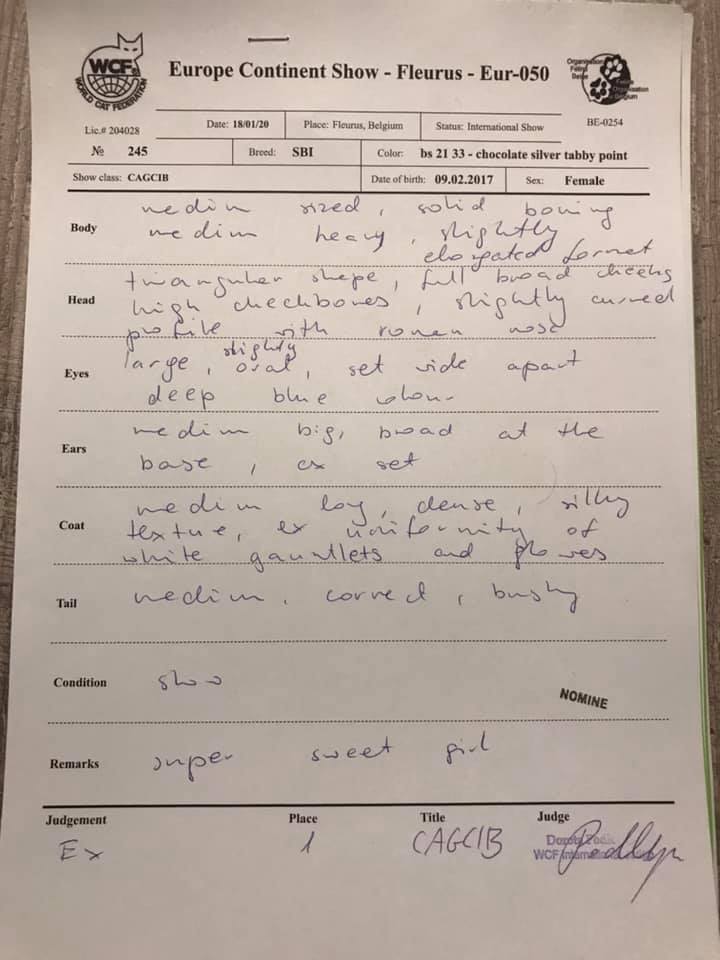 WCF
WORLD CAT FEDERATION
Europe Continent Show - Fleurus - Eur-050
Lic.# 204028
Date: 18/01/20
Place: Fleurus, Belgium
Status: International Show
BE-0254
№ 245
Breed: SBI
Color: bs 21 33 - chocolate silver tabby point
Show class: CAGCIB
Date of birth: 09.02.2017
Sex: Female
Body
medim sized, solid boning
medim heavy, slightly
elongated format
Head
triangular shape, full broad cheeks
high cheekbones, slightly curved
profile with roman nose
Eyes
large, slightly oval, set wide apart
deep blue colour
Ears
medim big, broad at the
base, ex set
Coat
medim log, dense, silky
texture, ex uniformity of
white gauntlets and gloves
Tail
medim, correct, bushy
Condition
show
NOMINE
Remarks
super sweet girl
Judgement
Place
Title
Judge
Ex
1
CAGCIB
WCF International